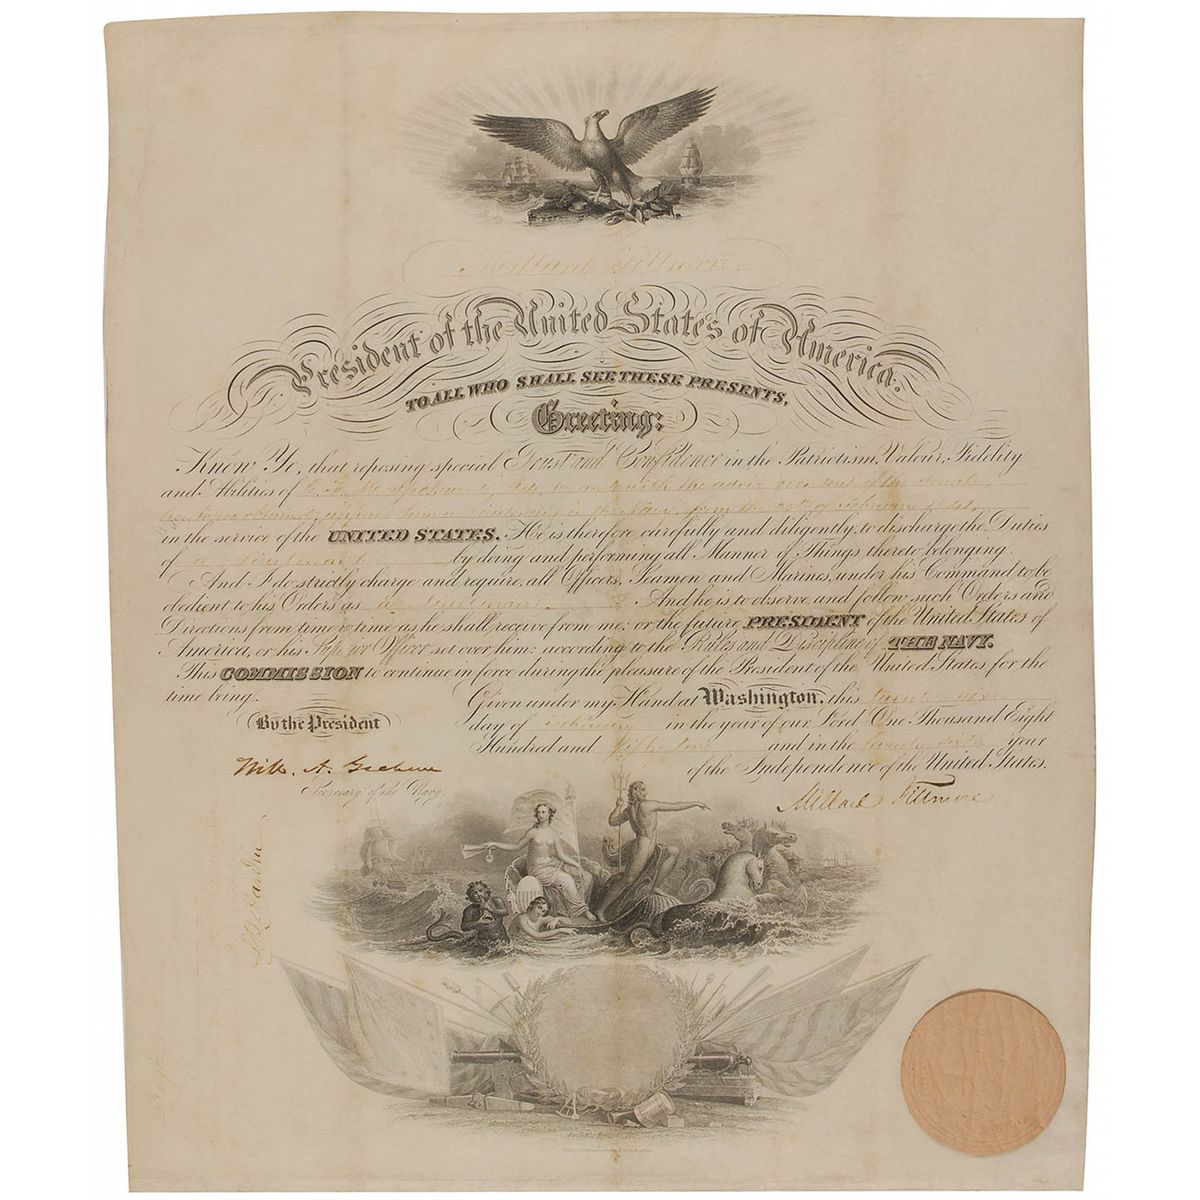 Millard Fillmore
President of the United States of America.
TO ALL WHO SHALL SEE THESE PRESENTS,
Greeting:
Know Ye, that reposing special Trust and Confidence in the Patriotism, Valour, Fidelity
and Abilities of C. by and with the advice
in the service of the UNITED STATES. He is therefore carefully and diligently to discharge the Duties
of a Lieutenant by doing and performing all Manner of Things thereto belonging.
And I do strictly charge and require, all Officers, Seamen and Marines, under his Command to be
obedient to his Orders as a Lieutenant And he is to observe and follow such Orders and
Directions from time to time as he shall receive from me: or the future PRESIDENT of the United States of
America, or his Superior Officer set over him: according to the Rules and Discipline of THE NAVY.
This COMMISSION to continue in force during the pleasure of the President of the United States for the
time being. Given under my Hand at Washington, this twenty
By the President day of February in the year of our Lord One Thousand Eight
Hundred and Fifty and in the Seventy year
of the Independence of the United States.
Will. A. Graham
Secretary of the Navy.
Millard Fillmore